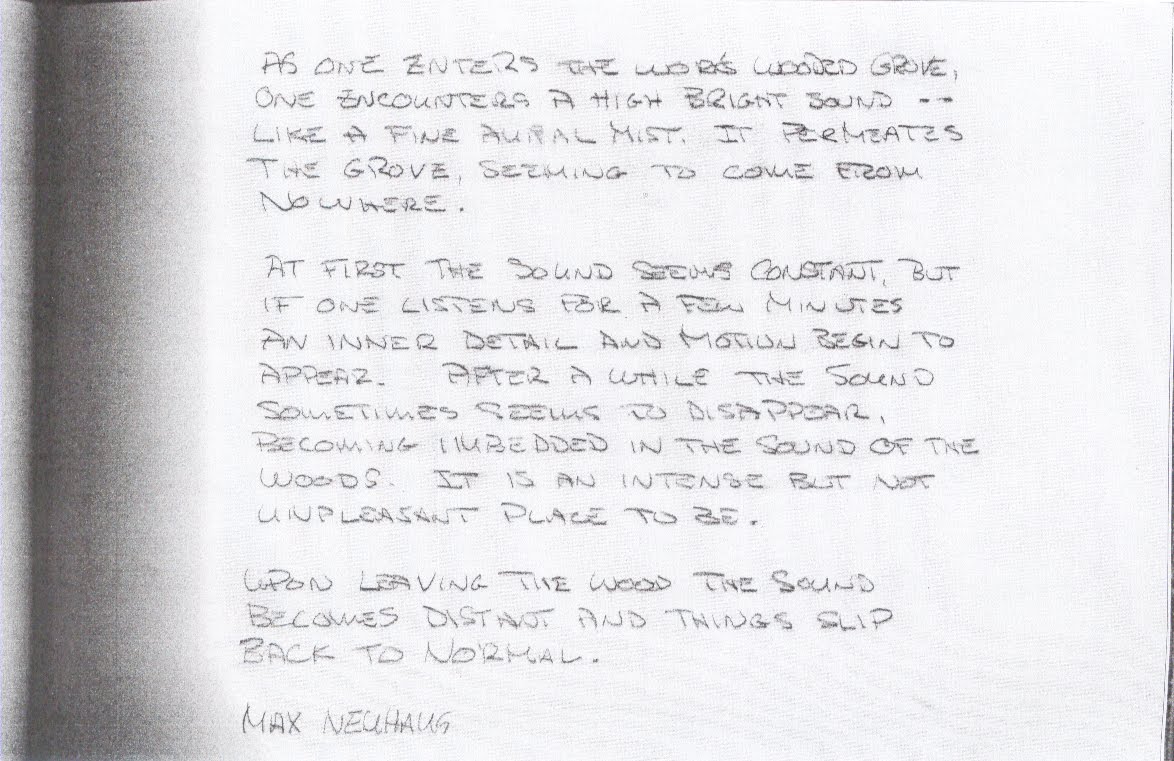 AS ONE ENTERS THE WORKS WOODED GROVE,
ONE ENCOUNTERS A HIGH BRIGHT SOUND --
LIKE A FINE AURAL MIST. IT PERMEATES
THE GROVE, SEEMING TO COME FROM
NOWHERE.
AT FIRST THE SOUND SEEMS CONSTANT, BUT
IF ONE LISTENS FOR A FEW MINUTES
AN INNER DETAIL AND MOTION BEGIN TO
APPEAR. AFTER A WHILE THE SOUND
SOMETIMES SEEMS TO DISAPPEAR,
BECOMING IMBEDDED IN THE SOUND OF THE
WOODS. IT IS AN INTENSE BUT NOT
UNPLEASANT PLACE TO BE.
UPON LEAVING THE WOOD THE SOUND
BECOMES DISTANT AND THINGS SLIP
BACK TO NORMAL.
MAX NEUHAUS